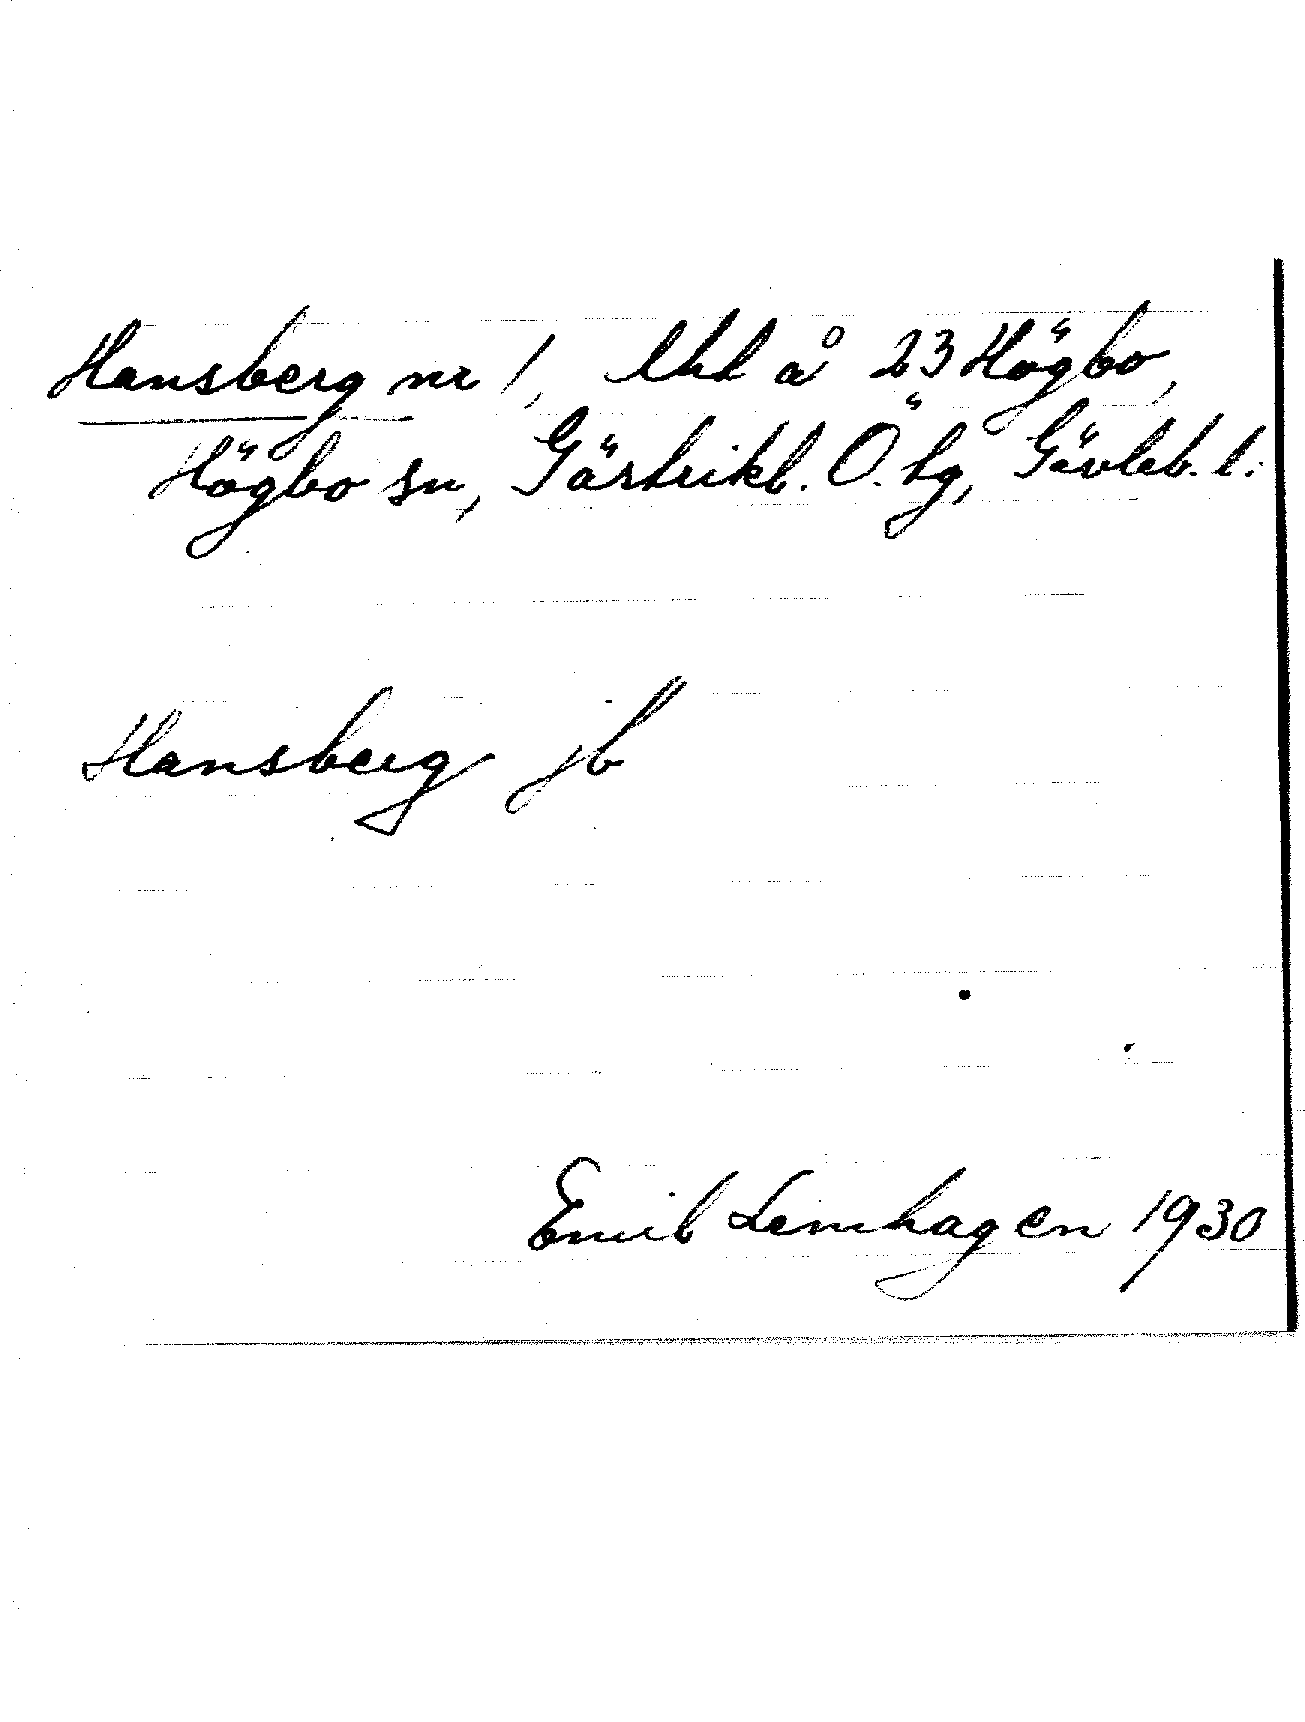 Hansberg nr 1, lhl å 23 Högbo,
Högbo sn, Gästrikl. Ö. tg, Gävleb. l.
Hansberg jb
Emil Lemhagen 1930